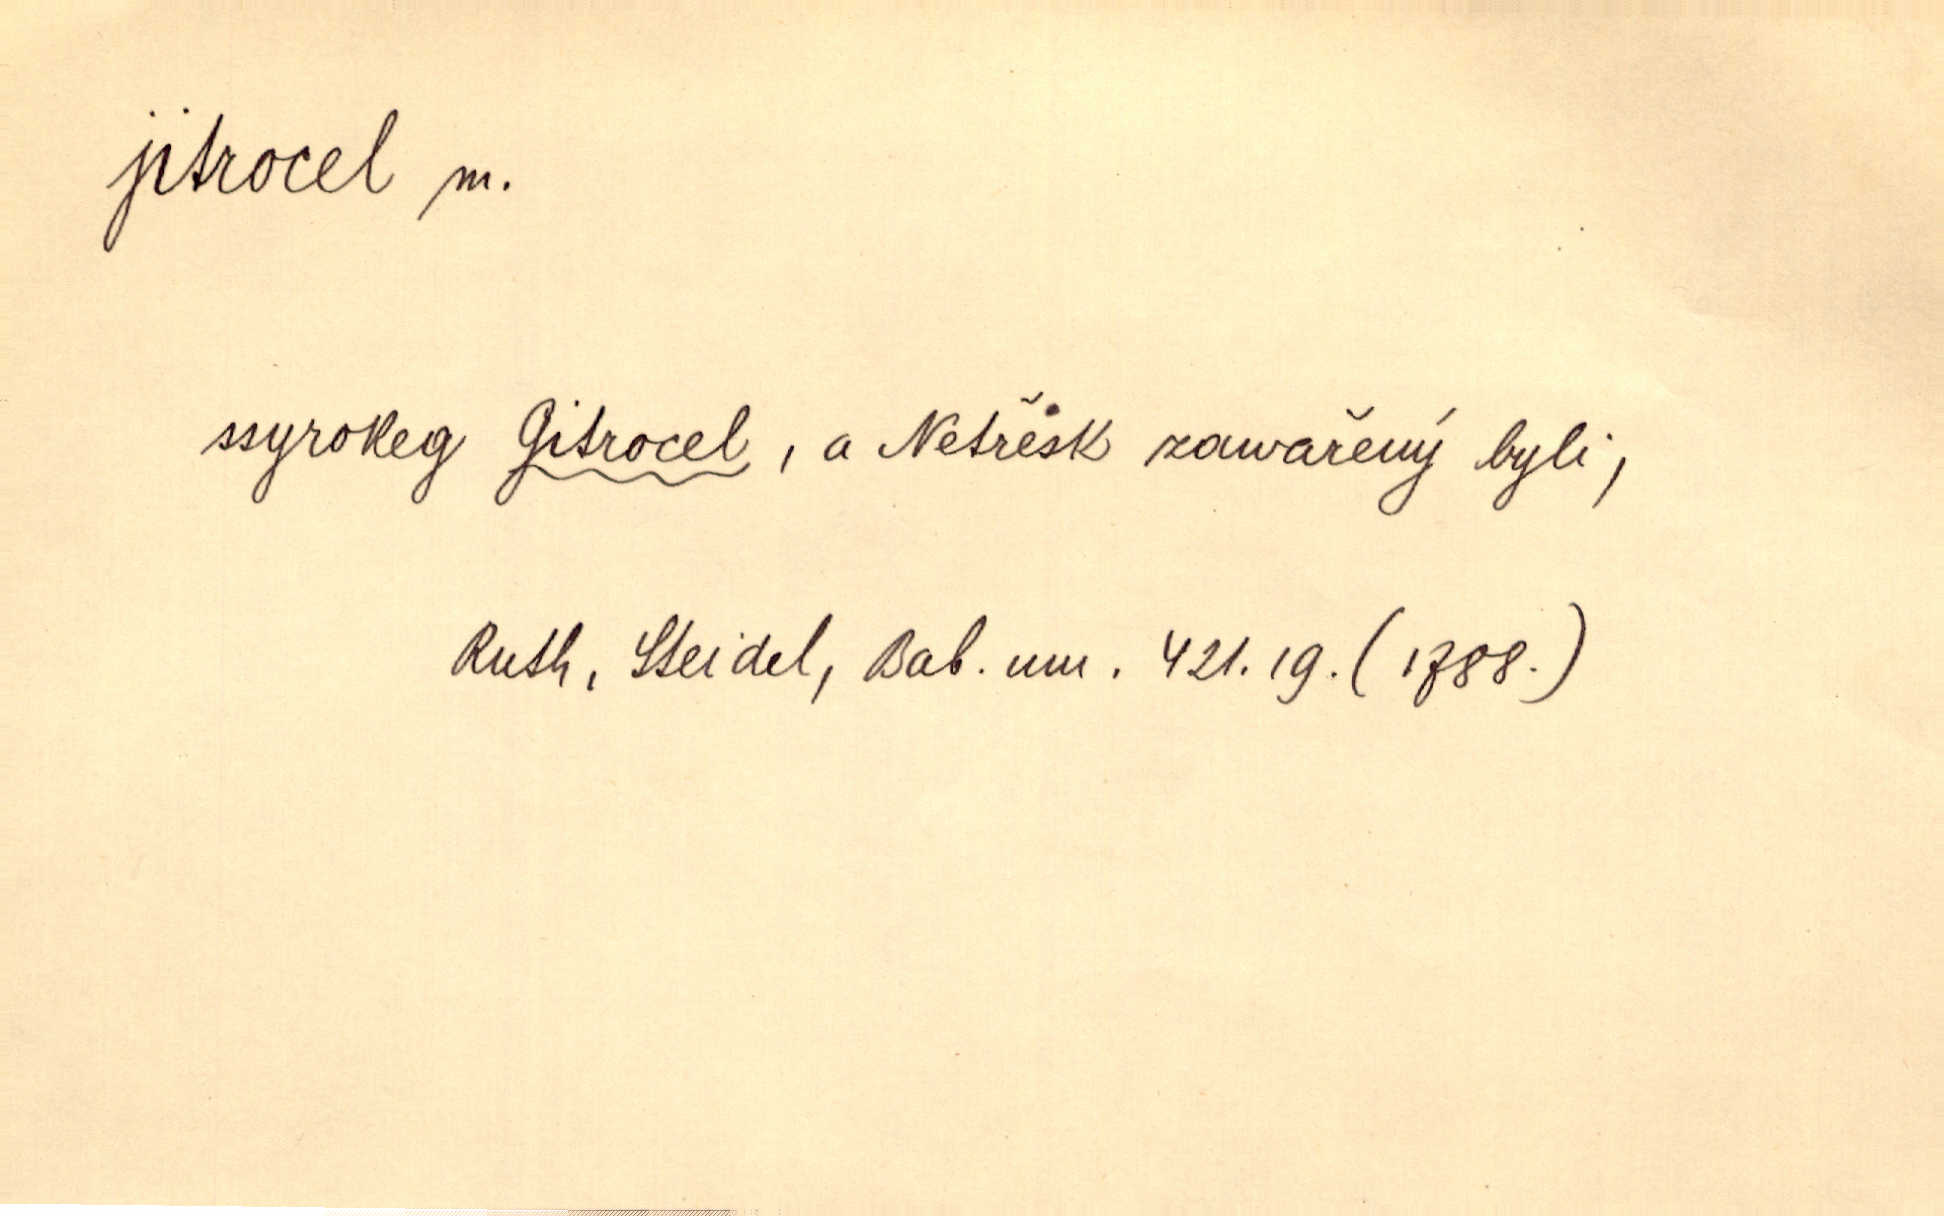 jitrocel m.
ssyrokeg Gitrocel, a Netřesk zawařený byli,
Ruth, Steidel, Bab. um. 421.19. (1788.)